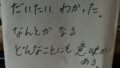 だいたい わかった。
なんとか なる
どんなことにも 意味が
ある。